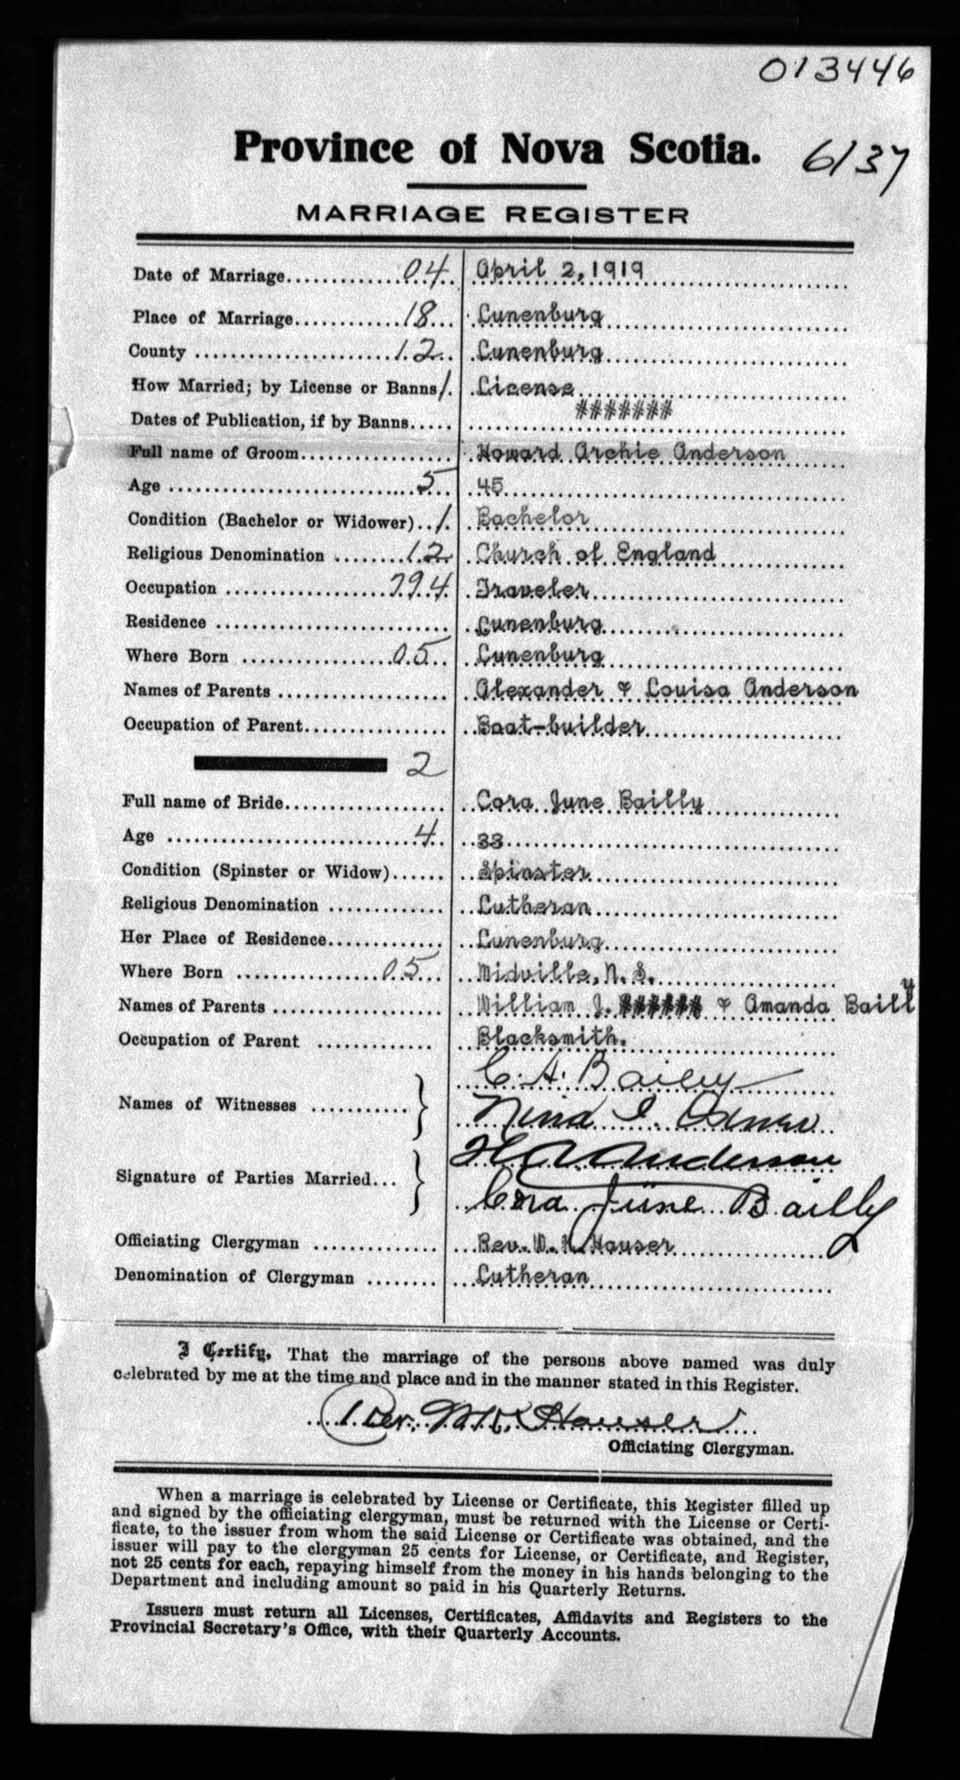 013446
Province of Nova Scotia. 6137
MARRIAGE REGISTER
Date of Marriage............04.. April 2, 1919
Place of Marriage............18... Lunenburg
County ....................12.. Lunenburg
How Married; by License or Banns 1. License
#######
Dates of Publication, if by Banns.....
Full name of Groom.................. Howard Archie Anderson
Age ..........................5.. 45
Condition (Bachelor or Widower)..1. Bachelor
Religious Denomination .......12. Church of England
Occupation ..................794. Traveler
Residence .......................... Lunenburg
Where Born .................05.. Lunenburg
Names of Parents .................... Alexander & Louisa Anderson
Occupation of Parent................. Boat-builder
2
Full name of Bride................... Cora June Bailly
Age ..........................4.. 33
Condition (Spinster or Widow)...... Spinster
Religious Denomination ............. Lutheran
Her Place of Residence............. Lunenburg
Where Born .................05... Midville, N. S.
Names of Parents .................... William J. ###### & Amanda Bailly
Occupation of Parent ............. Blacksmith.
C. A. Bailly
Names of Witnesses ...........
Nina
H A Anderson
Signature of Parties Married...
Cora June Bailly
Officiating Clergyman .............. Rev. W. K. Hauser
Denomination of Clergyman ........ Lutheran
I Certify, That the marriage of the persons above named was duly
celebrated by me at the time and place and in the manner stated in this Register.
Hauser
Officiating Clergyman.
When a marriage is celebrated by License or Certificate, this Register filled up
and signed by the officiating clergyman, must be returned with the License or Certi-
ficate, to the issuer from whom the said License or Certificate was obtained, and the
issuer will pay to the clergyman 25 cents for License, or Certificate, and Register,
not 25 cents for each, repaying himself from the money in his hands belonging to the
Department and including amount so paid in his Quarterly Returns.
Issuers must return all Licenses, Certificates, Affidavits and Registers to the
Provincial Secretary's Office, with their Quarterly Accounts.